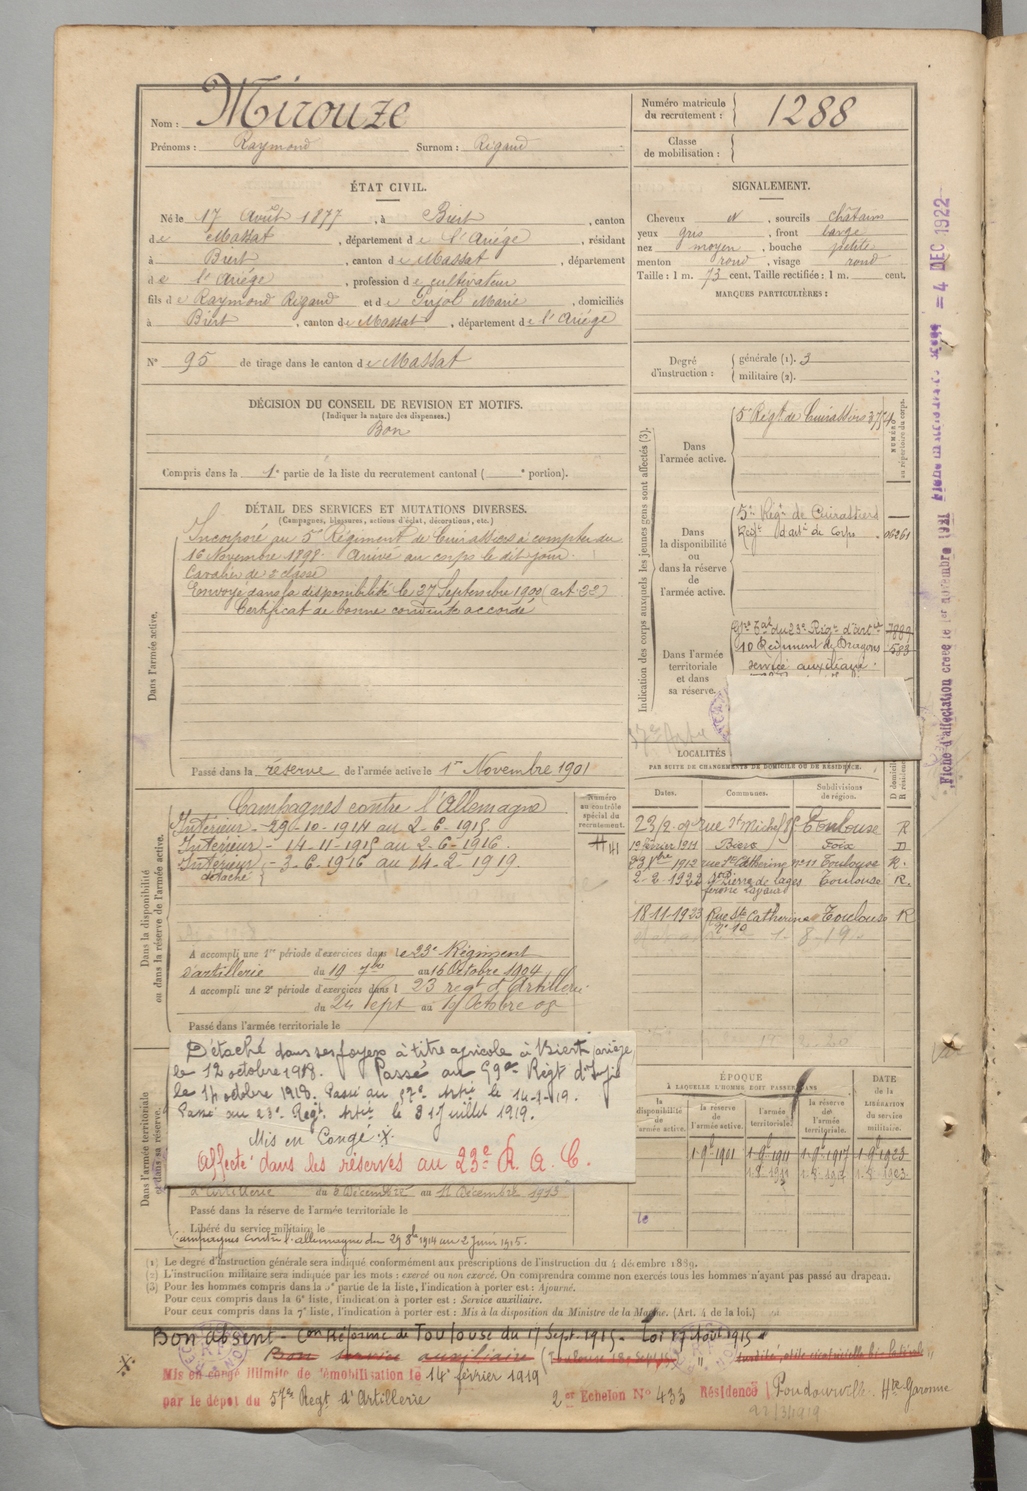 Nom : Mirouze
Prénoms : Raymond Surnom : Rigaud
Numéro matricule du recrutement : 1288
Classe de mobilisation :
ÉTAT CIVIL.
Né le 17 Août 1877, à Biert, canton
de Massat, département de l'Ariége, résidant
à Biert, canton de Massat, département
de l'Ariége, profession de cultivateur
fils de Raymond Rigaud et de Pujol Marie, domiciliés
à Biert, canton de Massat, département de l'Ariége
N° 95 de tirage dans le canton de Massat
SIGNALEMENT.
Cheveux N, sourcils châtains
yeux gris, front large
nez moyen, bouche petite
menton rond, visage rond
Taille : 1 m. 73 cent. Taille rectifiée : 1 m. cent.
MARQUES PARTICULIÈRES :
Degré d'instruction : générale (1). 3
militaire (2).
DÉCISION DU CONSEIL DE REVISION ET MOTIFS.
(Indiquer la nature des dispenses.)
Bon
Compris dans la 1e partie de la liste du recrutement cantonal ( e portion).
DÉTAIL DES SERVICES ET MUTATIONS DIVERSES.
(Campagnes, blessures, actions d'éclat, décorations, etc.)
Dans l'armée active.
Incorporé au 5e Régiment de Cuirassiers à compter du
16 Novembre 1898. Arrivé au corps le dit jour.
Cavalier de 2e classe
Envoyé dans la disponibilité le 27 Septembre 1900 (art. 22)
Certificat de bonne conduite accordé
Passé dans la réserve de l'armée active le 1er Novembre 1901
Indication des corps auxquels les jeunes gens sont affectés (3).
NUMÉRO au répertoire du corps.
Dans l'armée active.
5e Régt de Cuirassiers
Dans la disponibilité ou dans la réserve de l'armée active.
5e Régt de Cuirassiers
Régt d'artie de Corps 06261
Dans l'armée territoriale et dans sa réserve.
Gpe Tal du 23e Régt d'Artie 7989
10 Régiment de Dragons 583
service auxiliaire
LOCALITÉS
PAR SUITE DE CHANGEMENTS DE DOMICILE OU DE RÉSIDENCE.
Dates. Communes. Subdivisions de région. D domicile R résidence
rue St Michel Toulouse R
1er février 1911 Biert Foix D
1912 rue Ste Catherine n° 11 Toulouse R.
2-2-1922 St Pierre de Lages Toulouse R.
18-11-1923 Rue Ste Catherine Toulouse R
N° 10
Dans la disponibilité ou dans la réserve de l'armée active.
Numéro au contrôle spécial du recrutement.
Campagnes contre l'Allemagne
Intérieur - 29-10-1914 au 2-6-1915
Intérieur - 14-11-1915 au 2-6-1916.
Intérieur - 3-6-1916 au 14-2-1919.
détaché
A accompli une 1re période d'exercices dans le 23e Régiment
d'artillerie du 19 7bre au 16 Octobre 1904
A accompli une 2e période d'exercices dans l 23 régt d'Artillerie
du 24 Sept au
Passé dans l'armée territoriale le
Dans l'armée territoriale et dans sa réserve.
Détaché dans ses foyers à titre agricole à Biert ariège
le 12 octobre 1918. Passé au
Passé au 57e Artie le 14-1-19.
Passé au 23e Régt Artie le 31 Juillet 1919.
Mis en Congé X.
Affecté dans les réserves au 23e R. A. C.
d'artillerie du 3 Décembre au 11 Décembre 1913
Passé dans la réserve de l'armée territoriale le
Libéré du service militaire le
Campagnes contre l'allemagne du 29 8bre 1914 au 2 Juin 1915.
ÉPOQUE
À LAQUELLE L'HOMME DOIT PASSER DANS
la disponibilité de l'armée active. la réserve de l'armée active. l'armée territoriale. la réserve de l'armée territoriale.
DATE de la LIBÉRATION du service militaire.
(1) Le degré d'instruction générale sera indiqué conformément aux prescriptions de l'instruction du 4 décembre 1889.
(2) L'instruction militaire sera indiquée par les mots : exercé ou non exercé. On comprendra comme non exercés tous les hommes n'ayant pas passé au drapeau.
(3) Pour les hommes compris dans la 5e partie de la liste, l'indication à porter est : Ajourné.
Pour ceux compris dans la 6e liste, l'indication à porter est : Service auxiliaire.
Pour ceux compris dans la 7e liste, l'indication à porter est : Mis à la disposition du Ministre de la Marine. (Art. 4 de la loi.)
Bon absent - Con Réforme de Toulouse du 17 Sept. 1915 - Loi 17 Août 1915
Bon service auxiliaire
X. Mis en congé illimité de démobilisation le 14 février 1919
par le dépôt du 57e Régt d'Artillerie
2e Echelon N° 433 Résidence Hte Garonne
= 4 DEC 1922